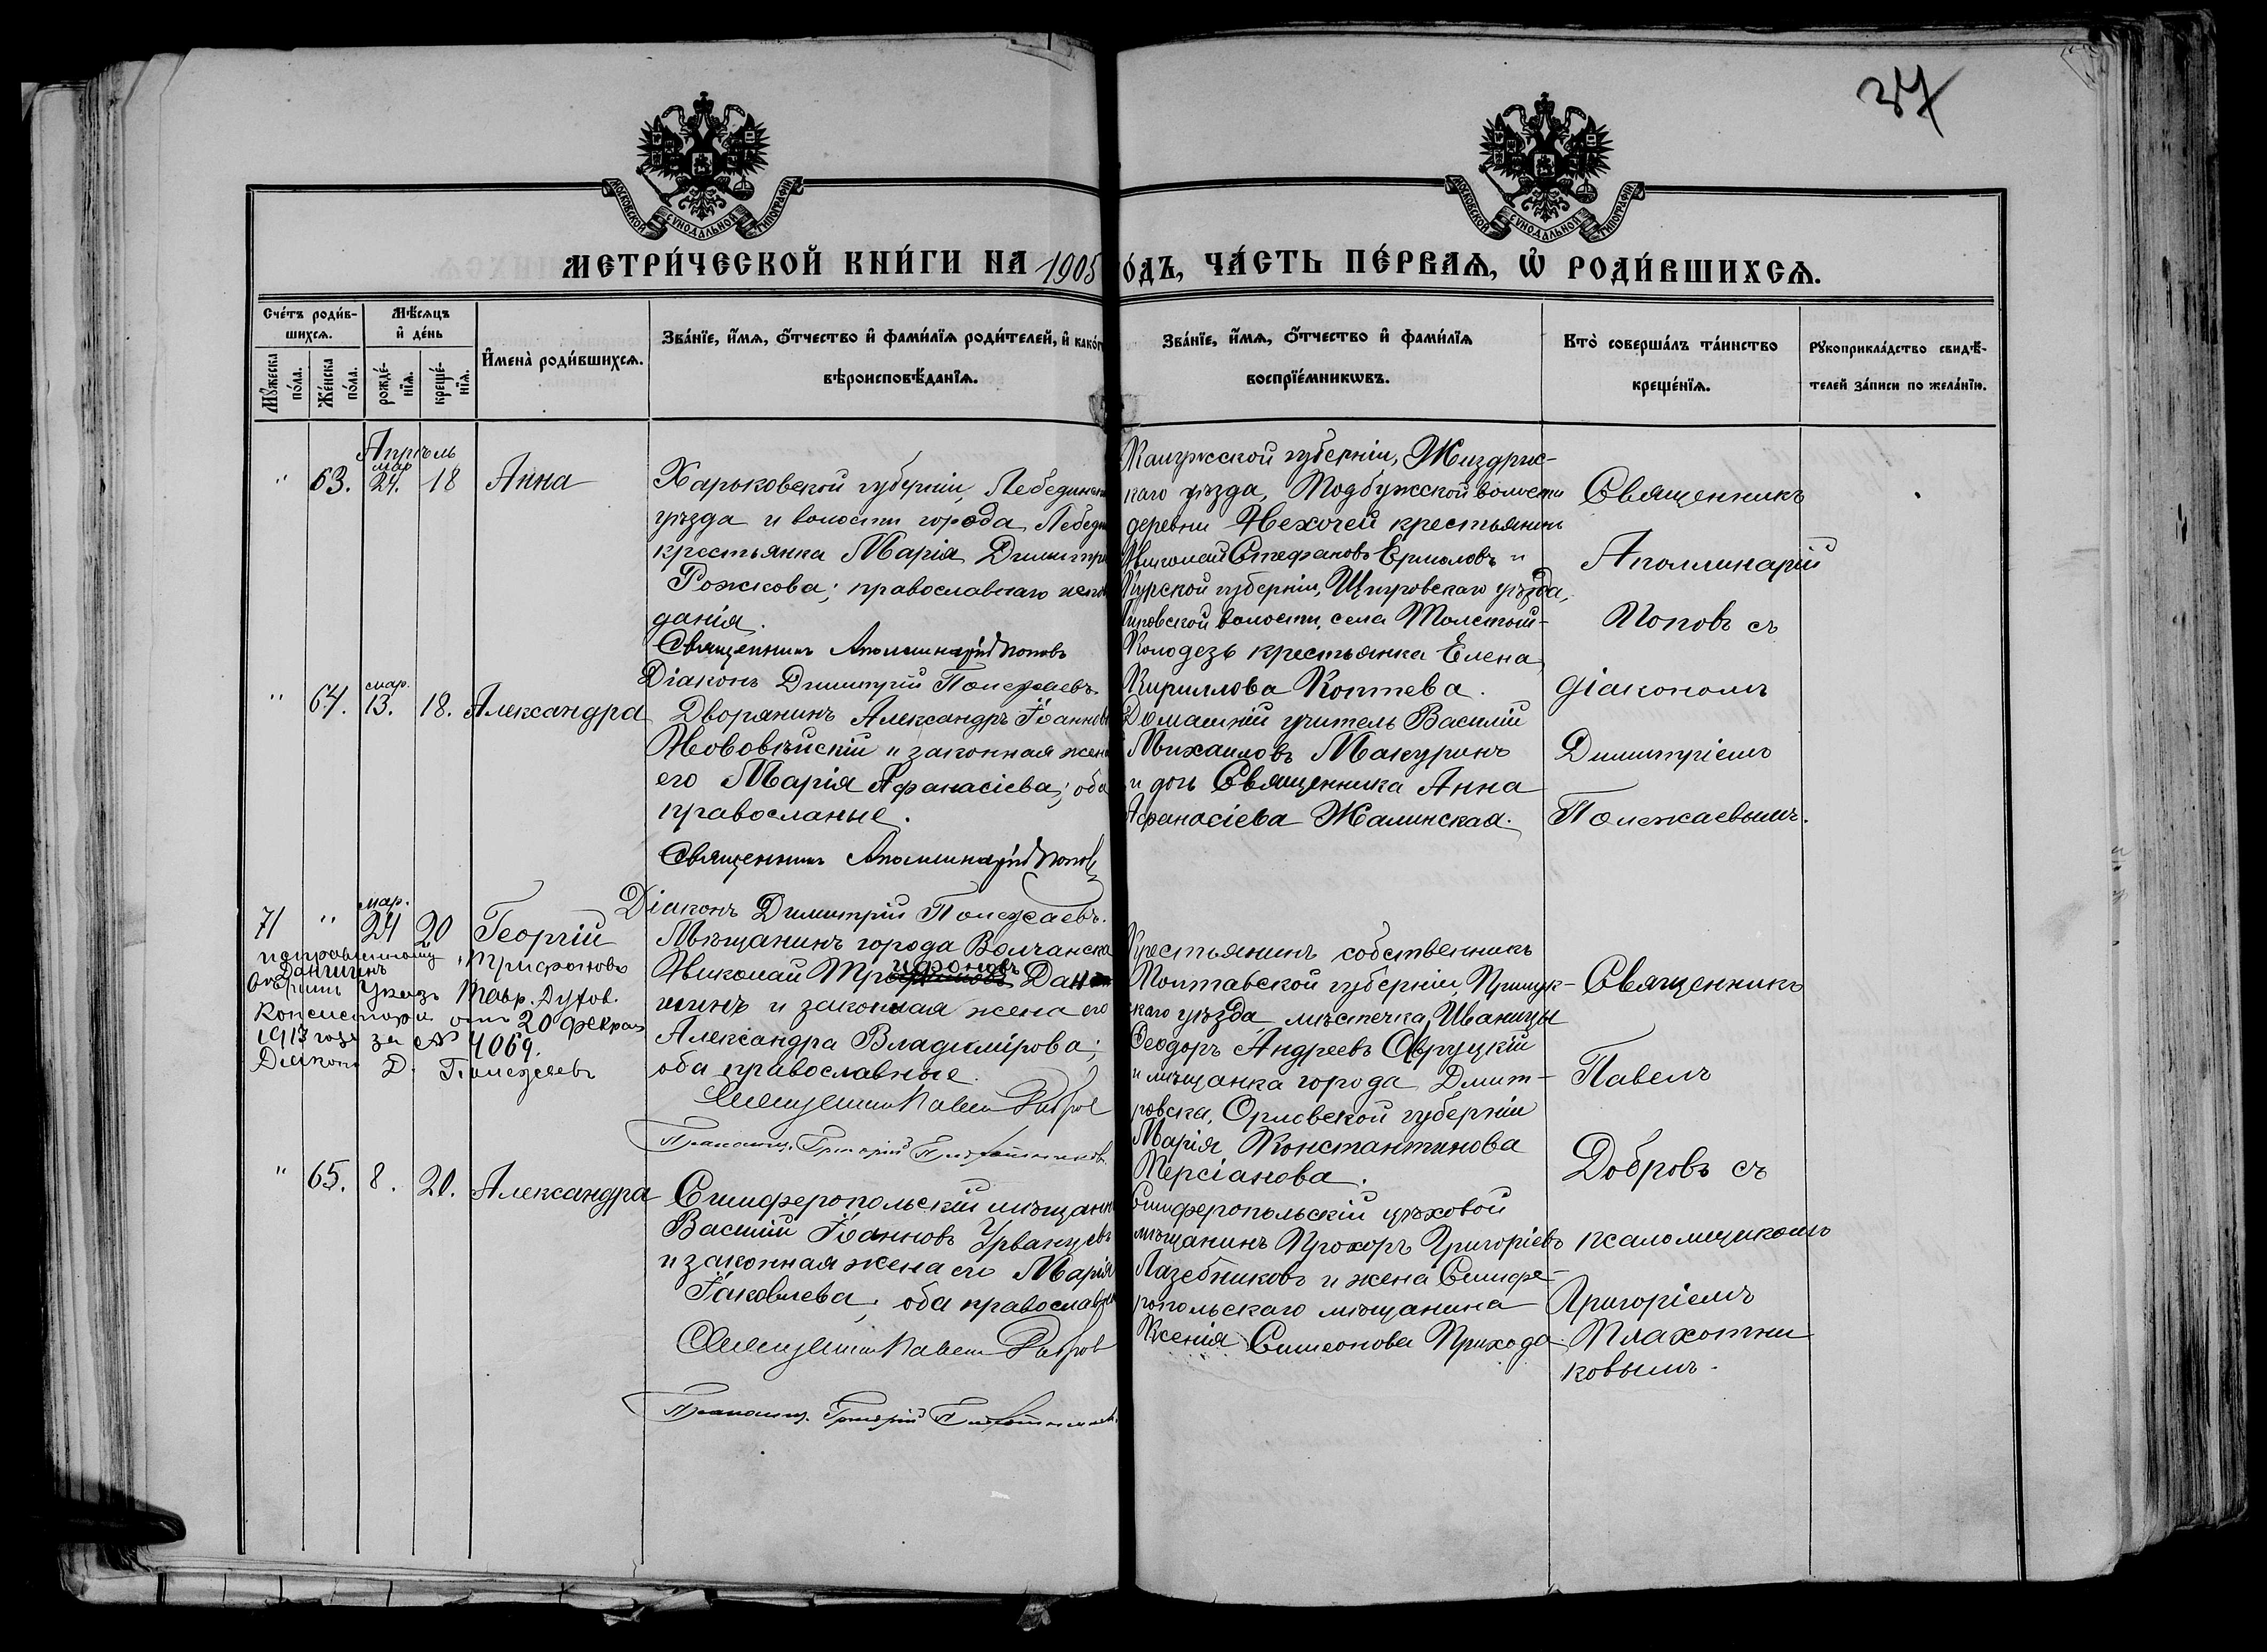 37
МОСКОВСКОЙ СѴНОДАЛЬНОЙ ТИПОГРАФІИ
МОСКОВСКОЙ СѴНОДАЛЬНОЙ ТИПОГРАФІИ
МЕТРИ́ЧЕСКОЙ КНИ́ГИ НА 1905 ОДЪ, ЧА́СТЬ ПЕ́РВАѦ, Ѡ҆ РОДИ́ВШИХСѦ.
Сче́тъ роди́в-
шихсѧ.
Мꙋ́жеска
по́ла.
Же́нска
по́ла.
Мѣ́сѧцъ
и҆ де́нь
рожде́-
нїѧ.
креще́-
нїѧ.
И҆мена̀ роди́вшихсѧ.
Зва́нїе, и҆́мѧ, ѻ҆́тчество и҆ фами́лїѧ роди́телей, и҆ како́г
вѣроисповѣ́данїѧ.
Зва́нїе, и҆́мѧ, ѻ҆́тчество и҆ фами́лїѧ
воспрїе́мникѡвъ.
Кто̀ соверша́лъ та́инство
креще́нїѧ.
Рꙋкоприкла́дство свидѣ́-
телей за́писи по жела́нїю.
Апрѣль
" 63. мар 24. 18 Анна
Харьковской губерніи, Лебединск
уѣзда и волости города Лебеди
крестьянка Марія Димитрі
Рожкова; православнаго испов
данія.
Священникъ Аполлинарій Поповъ
Діаконъ Димитрій Полежаевъ.
Калужской губерніи, Жиздрин-
скаго уѣзда, Подбужской волости
деревни Нехочей крестьянинъ
Николай Стефановъ Ермоловъ и
Курской губерніи, Щигровскаго уѣзда,
волости, села Толстой-
Колодезь крестьянка Елена
Кириллова Коптева.
Священникъ
Аполлинарій
Поповъ съ
діакономъ
Димитріемъ
Полежаевымъ.
" 64. мар. 13. 18. Александра
Дворянинъ Александръ Іоаннов
Нововѣйскій и законная жен
его Марія Афанасіева; оба
правосланые.
Священникъ Аполлинарій Поповъ
Діаконъ Димитрій Полежаевъ.
Домашній учитель Василій
Михаиловъ Макуринъ
и дочь Священника Анна
Афанасіева Жалинская.
71 " мар. 24 20 Георгій
исправленному "Трифоновъ
Даншинъ"
Указъ Тавр. Духов.
Консисторіи отъ 20 февраля
1913 года за № 4069.
Діаконъ Д. Полежаевъ
Мѣщанинъ города Волчанска
Николай Трифоновъ Дан
шинъ и законная жена его
Александра Владимірова;
оба православные.
Священникъ Павелъ Добров
Псаломщ. Григорій Плахотниковъ.
Крестьянинъ собственникъ
Полтавской губерніи, Прилук-
скаго уѣзда мѣстечка Иваницы
Ѳеодоръ Андреевъ Овруцкій
и мѣщанка города Дмит-
ровска, Орловской губерніи
Марія Константинова
Персіанова.
Священникъ
Павелъ
Добровъ съ
псаломщикомъ
Григоріемъ
Плахотни
ковымъ.
" 65. 8. 20. Александра
Симферопольскій мѣщанин
Василій Іоанновъ Урванцевъ
и законная жена его Марія
Іаковлева; оба православны
Священникъ Павелъ Добров
Псаломщ. Григорій Плахотников.
Симферопольскій цѣховой
мѣщанинъ Прохоръ Григоріевъ
Лазебниковъ и жена Симфе-
ропольскаго мѣщанина
Ксенія Симеонова Прихода.